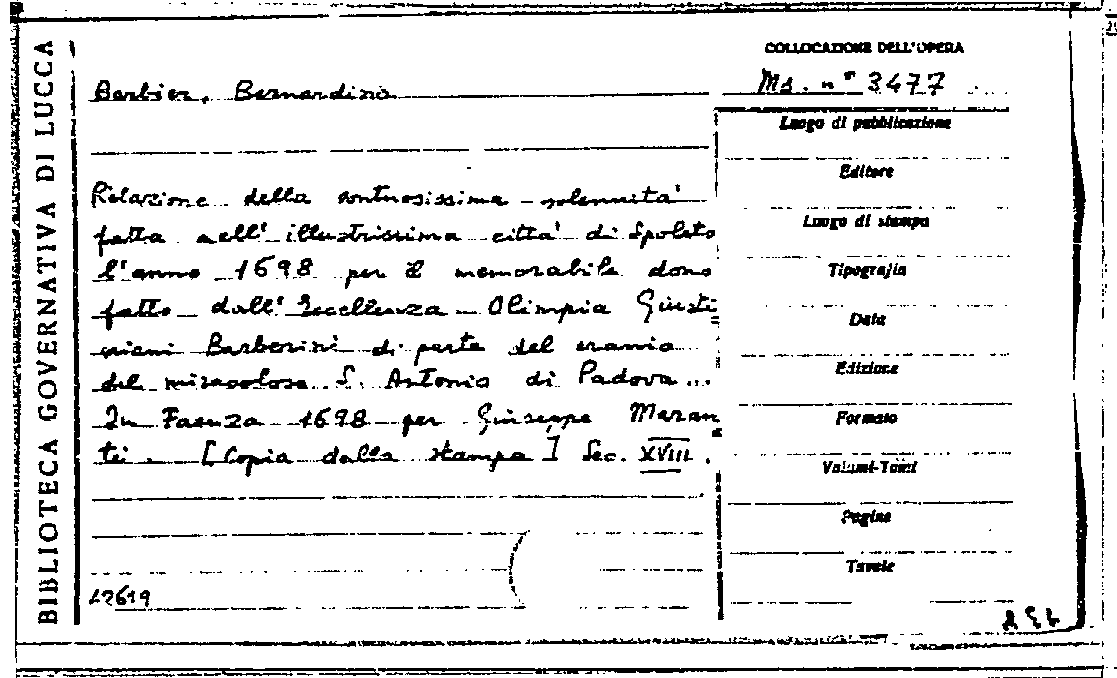 BIBLIOTECA GOVERNATIVA DI LUCCA
COLLOCAZIONE DELL'OPERA
Ms. n° 3477
Barbier, Bernardino
Relazione della sontuosissima solennità
fatta nell' illustrissima città di Spoleto
l'anno 1698 per il memorabile dono
fatto dall' Eccellenza Olimpia Giusti
niani Barberini di parte del cranio
del miracoloso S. Antonio di Padova...
In Faenza 1698 per Giuseppe Maran
ti. [Copia dalla stampa] Sec. XVIII.
42619
Luogo di pubblicazione
Editore
Luogo di stampa
Tipografia
Data
Edizione
Formato
Volumi-Tomi
Pagine
Tavole